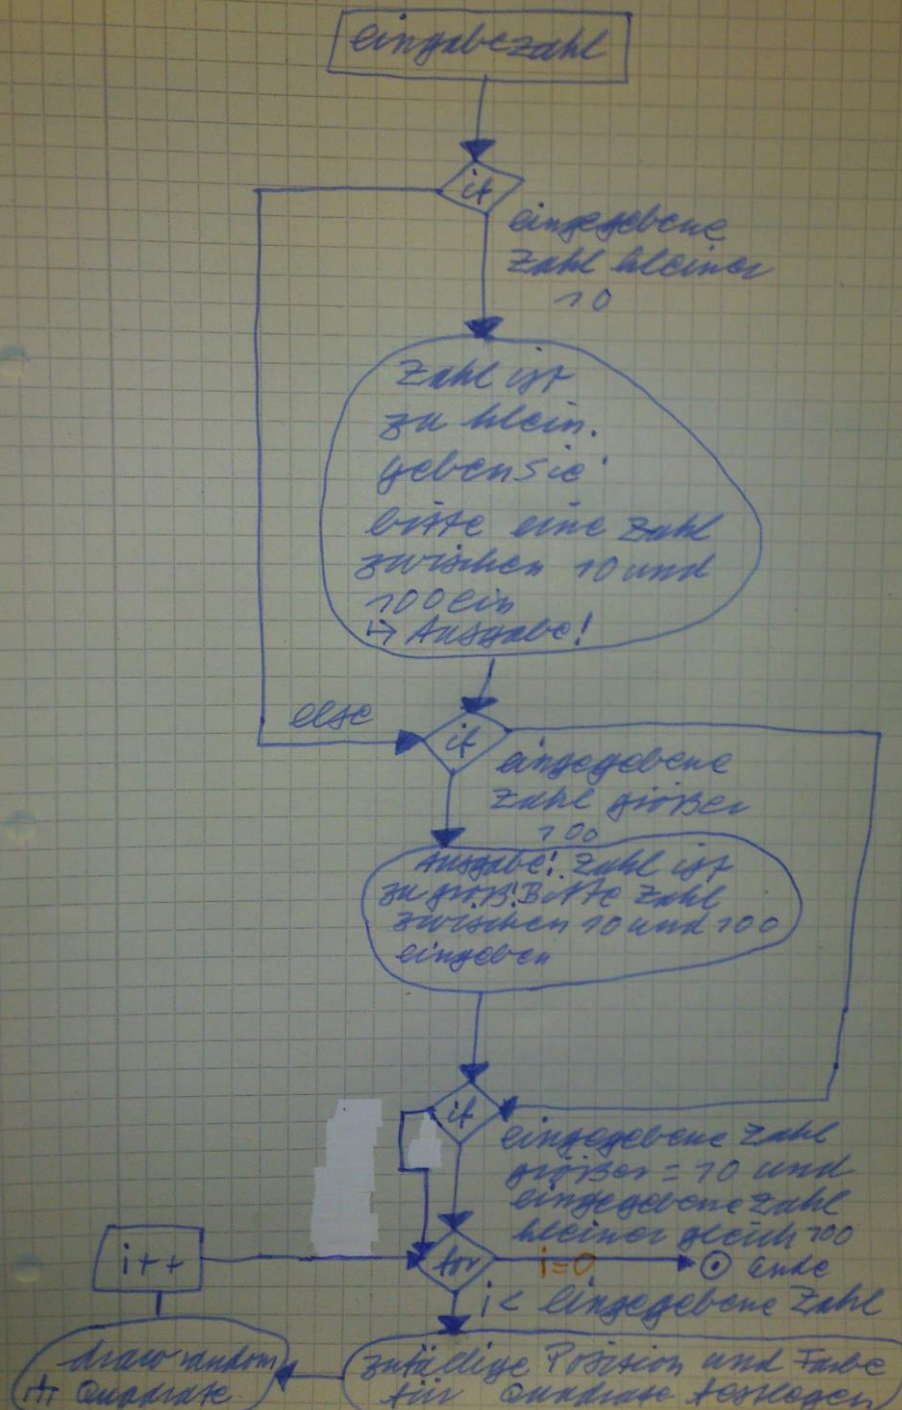 eingabezahl
if
eingegebene
Zahl kleiner
10
Zahl ist
zu klein.
geben Sie
bitte eine Zahl
zwischen 10 und
100 ein
↦ Ausgabe!
else
if
eingegebene
Zahl größer
100
Ausgabe! Zahl ist
zu groß! Bitte Zahl
zwischen 10 und 100
eingeben
if
eingegebene Zahl
größer = 10 und
eingegebene Zahl
kleiner gleich 100
i++
for
i=0
ende
i < eingegebene Zahl
draw random
Quadrate
zufällige Position und Farbe
für Quadrate festlegen